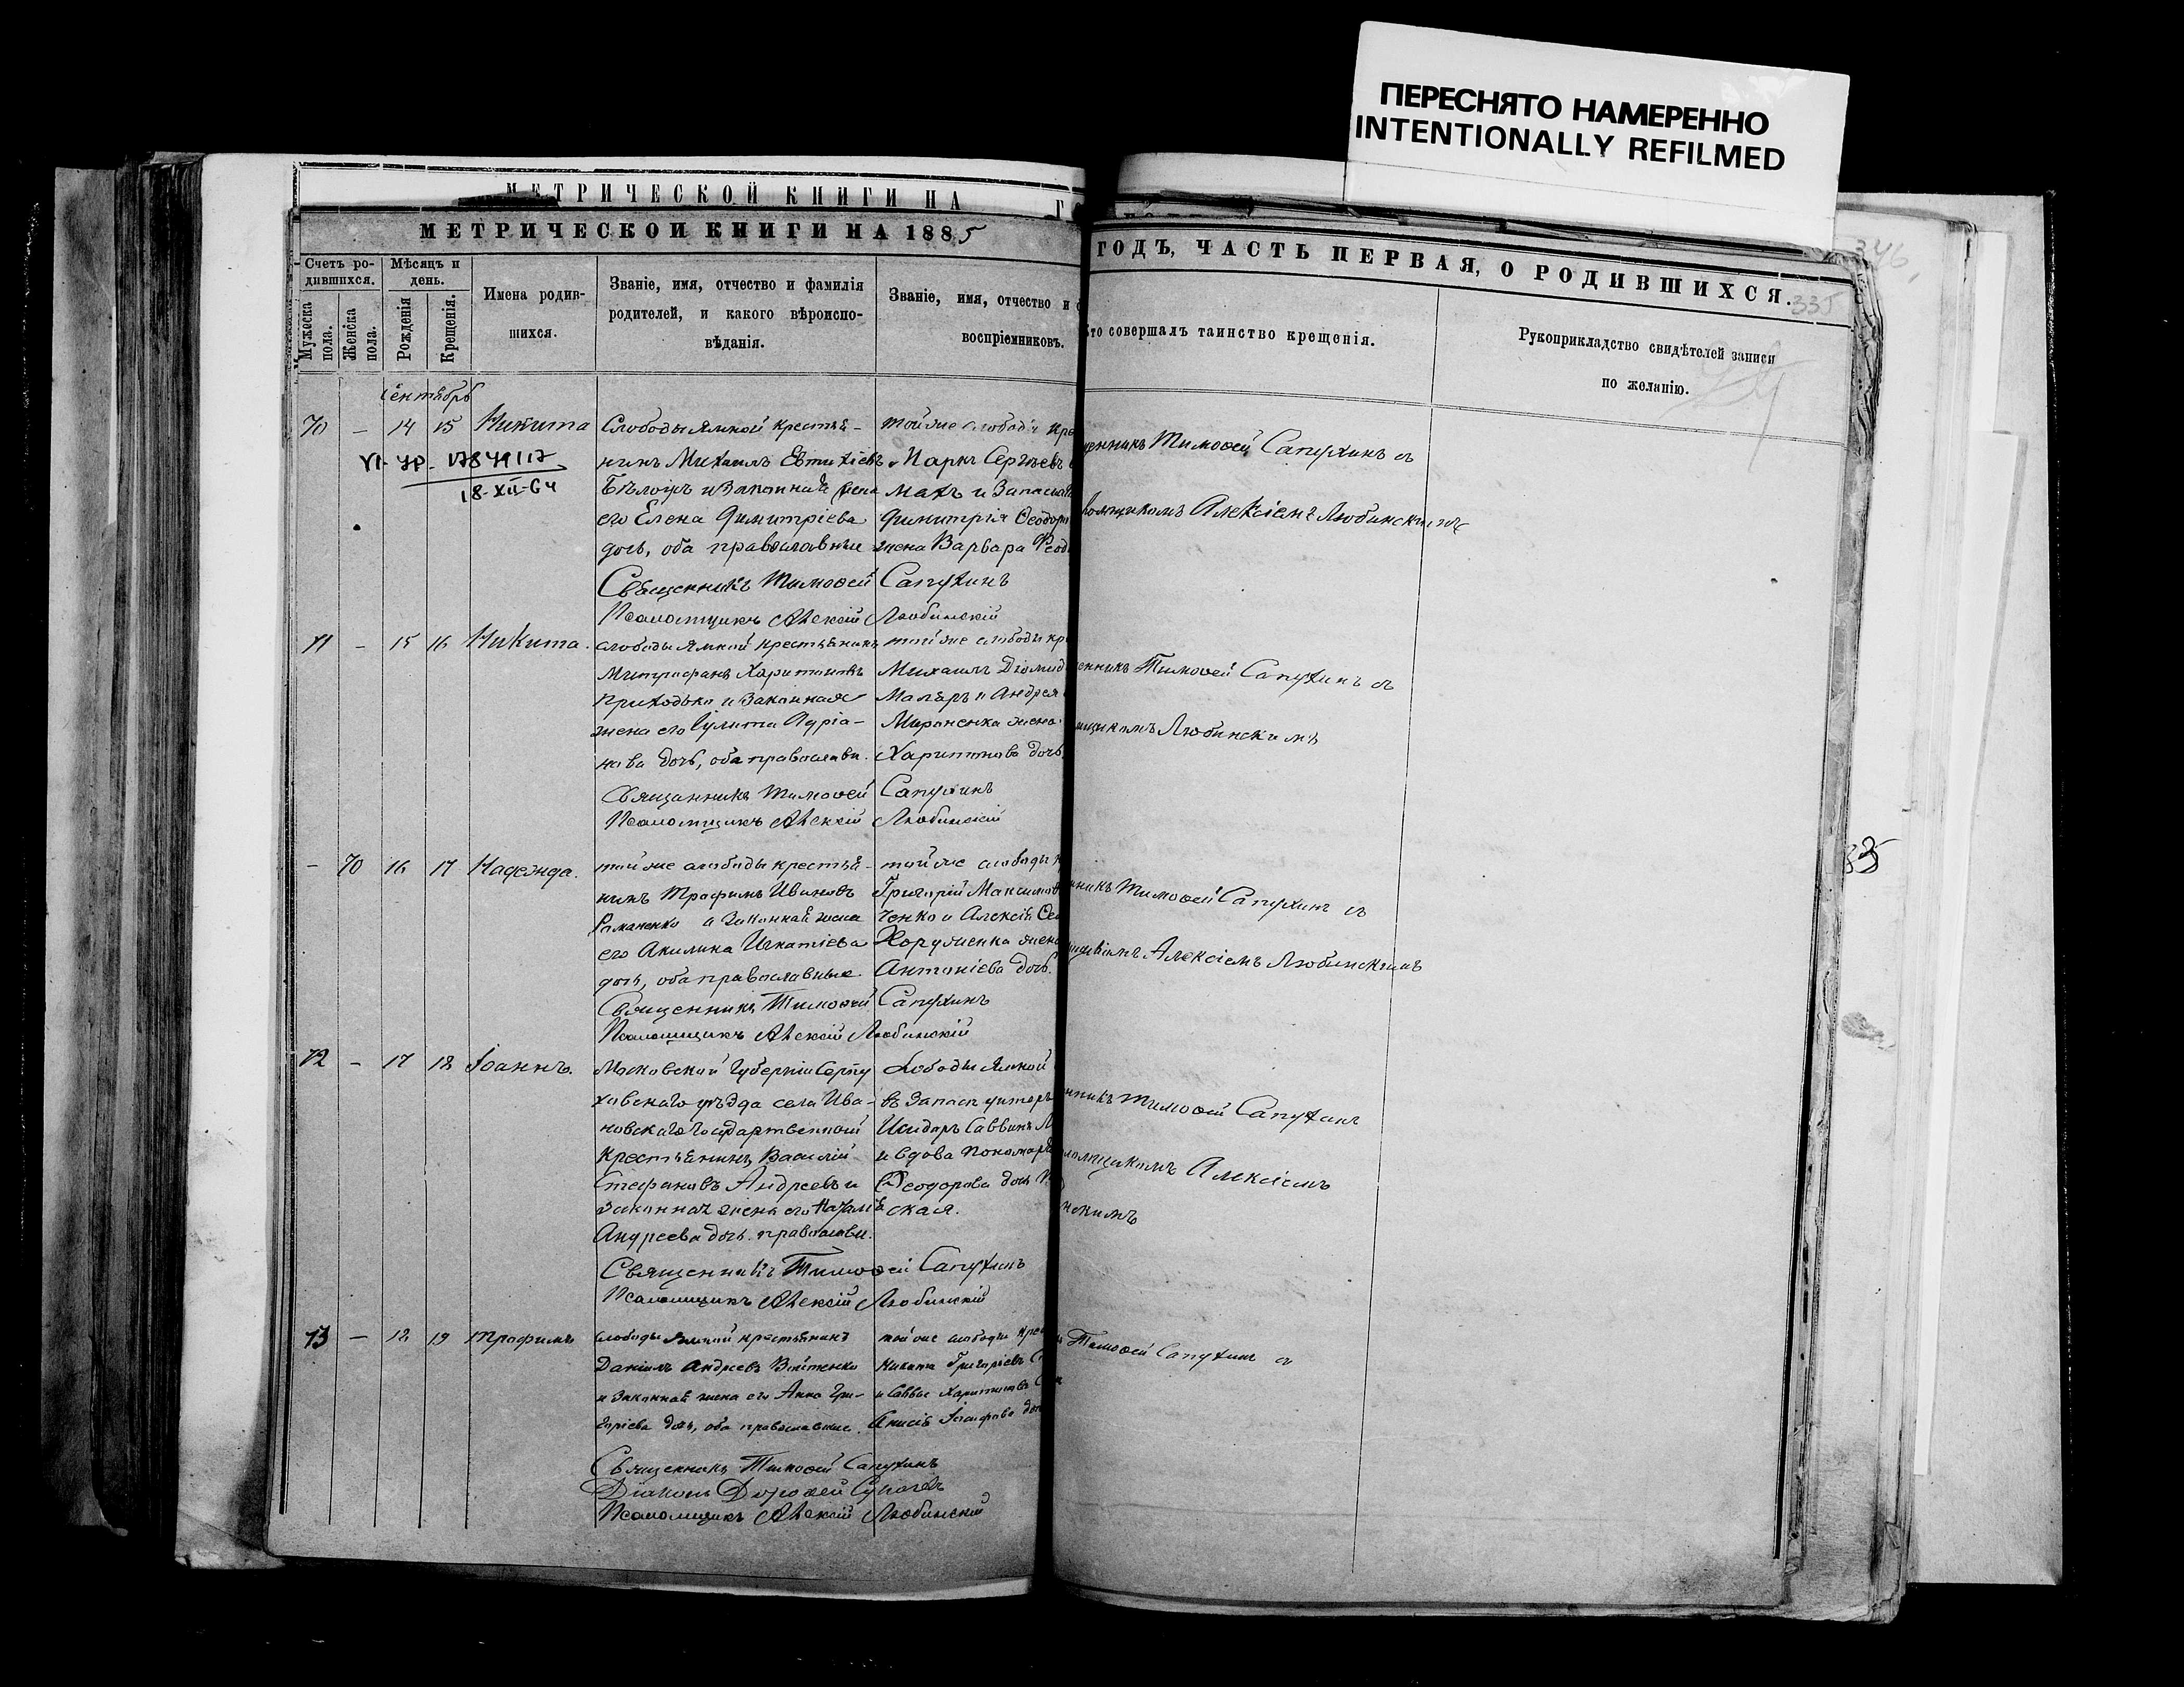 ПЕРЕСНЯТО НАМЕРЕННО
INTENTIONALLY REFILMED
МЕТРИЧЕСКОЙ КНИГИ НА
МЕТРИЧЕСКОЙ КНИГИ НА 1885
ГОДЪ, ЧАСТЬ ПЕРВАЯ, О РОДИВШИХСЯ.
346
335
Счетъ ро-
дившихся.
Мужеска пола.
Женска пола.
Мѣсяцъ и
день.
Рожденія
Крещенія.
Имена родив-
шихся.
Званіе, имя, отчество и фамилія
родителей, и какого вѣроиспо-
вѣданія.
Званіе, имя, отчество и
воспріемниковъ.
то совершалъ таинство крещенія.
Рукоприкладство свидѣтелей записи
по желанію.
Сентябрь
70 – 14 15 Никита
VI-УР. 1784117
18-XII-64
Слободы Ямной крестья-
нинъ Михаилъ Евтихіевъ
и законная жена
его Елена Димитріева
дочь, оба православные
той же слободы кре
Маркъ Сергѣевъ
Димитрія Ѳеодор
жена Варвара Ѳеод
Священникъ Тимоѳей Сапухинъ
Псаломщикъ Алексій Любинскій
щенникъ Тимоѳей Сапухинъ съ
ломщикомъ Алексіемъ Любинскимъ
71 – 15 16 Никита.
слободы Ямной крестьянинъ
Митрофанъ Харитоновъ
Приходько и законная
жена его Іулита Адріа-
нова дочь, оба православн.
той же слободы кр
Михаилъ Діомид
Маляръ и Андрея
Мироненка жена
Харитонова дочь
Священникъ Тимоѳей Сапухинъ
Псаломщикъ Алексій Любинскій
енникъ Тимоѳей Сапухинъ съ
мщикомъ Любинскимъ
– 70 16 17 Надежда.
той же слободы крестья-
нинъ Трофимъ Ивановъ
Романенко и законная жена
его Акилина Игнатіева
дочь, оба православные.
той же слободы к
Григорій Максимов
ченко и Алексія Ѳео
Хоруженка жена
Антоніева дочь.
Священникъ Тимоѳей Сапухинъ
Псаломщикъ Алексій Любинскій
нникъ Тимоѳей Сапухинъ съ
мщикомъ Алексіемъ Любинскимъ
335
72 – 17 18 Іоаннъ.
Московской Губерніи Серпу
ховскаго уѣзда села Ива-
новскаго Государственный
крестьянинъ Василій
Стефановъ Андреевъ и
законная жена его Наталія
Андреева дочь. православн.
Слободы Ямной
въ запасѣ унтеръ
Исидоръ Саввинъ
и вдова Пономаря
Ѳеодорова дочь
ская.
Священникъ Тимоѳей Сапухинъ
Псаломщикъ Алексій Любинскій
нникъ Тимоѳей Сапухинъ
ломщикомъ Алексіемъ
нскимъ
73 – 18 19 Трофимъ
слободы Ямной крестьянинъ
Даніилъ Андреевъ Войтенко
и законная жена его Анна Гри-
горіева дочь, оба православные.
той же слободы кре
Никита Григоріевъ
и Саввы Харитонова
Анисія дочь
Священникъ Тимоѳей Сапухинъ
Діаконъ Дороѳей
Псаломщикъ Алексій Любинскій
Тимоѳей Сапухинъ съ